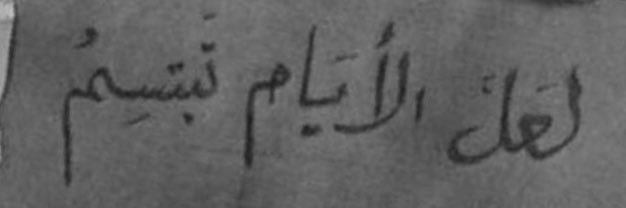 لعَلَّ الأيَّام تَبتسِمُ